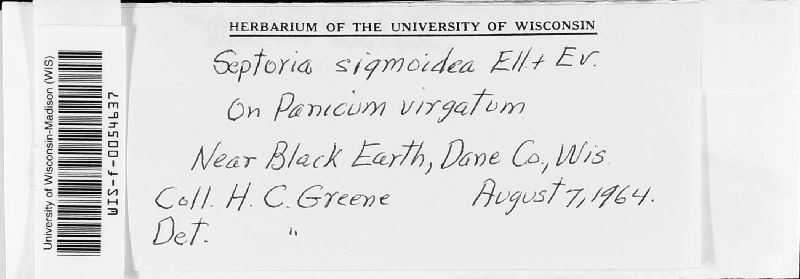 HERBARIUM OF THE UNIVERSITY OF WISCONSIN
Septoria sigmoidea Ell. + Ev.
On Panicum virgatum
Near Black Earth, Dane Co., Wis.
Coll. H. C. Greene August 7, 1964.
Det. "
University of Wisconsin-Madison (WIS)
WIS-f-0054637